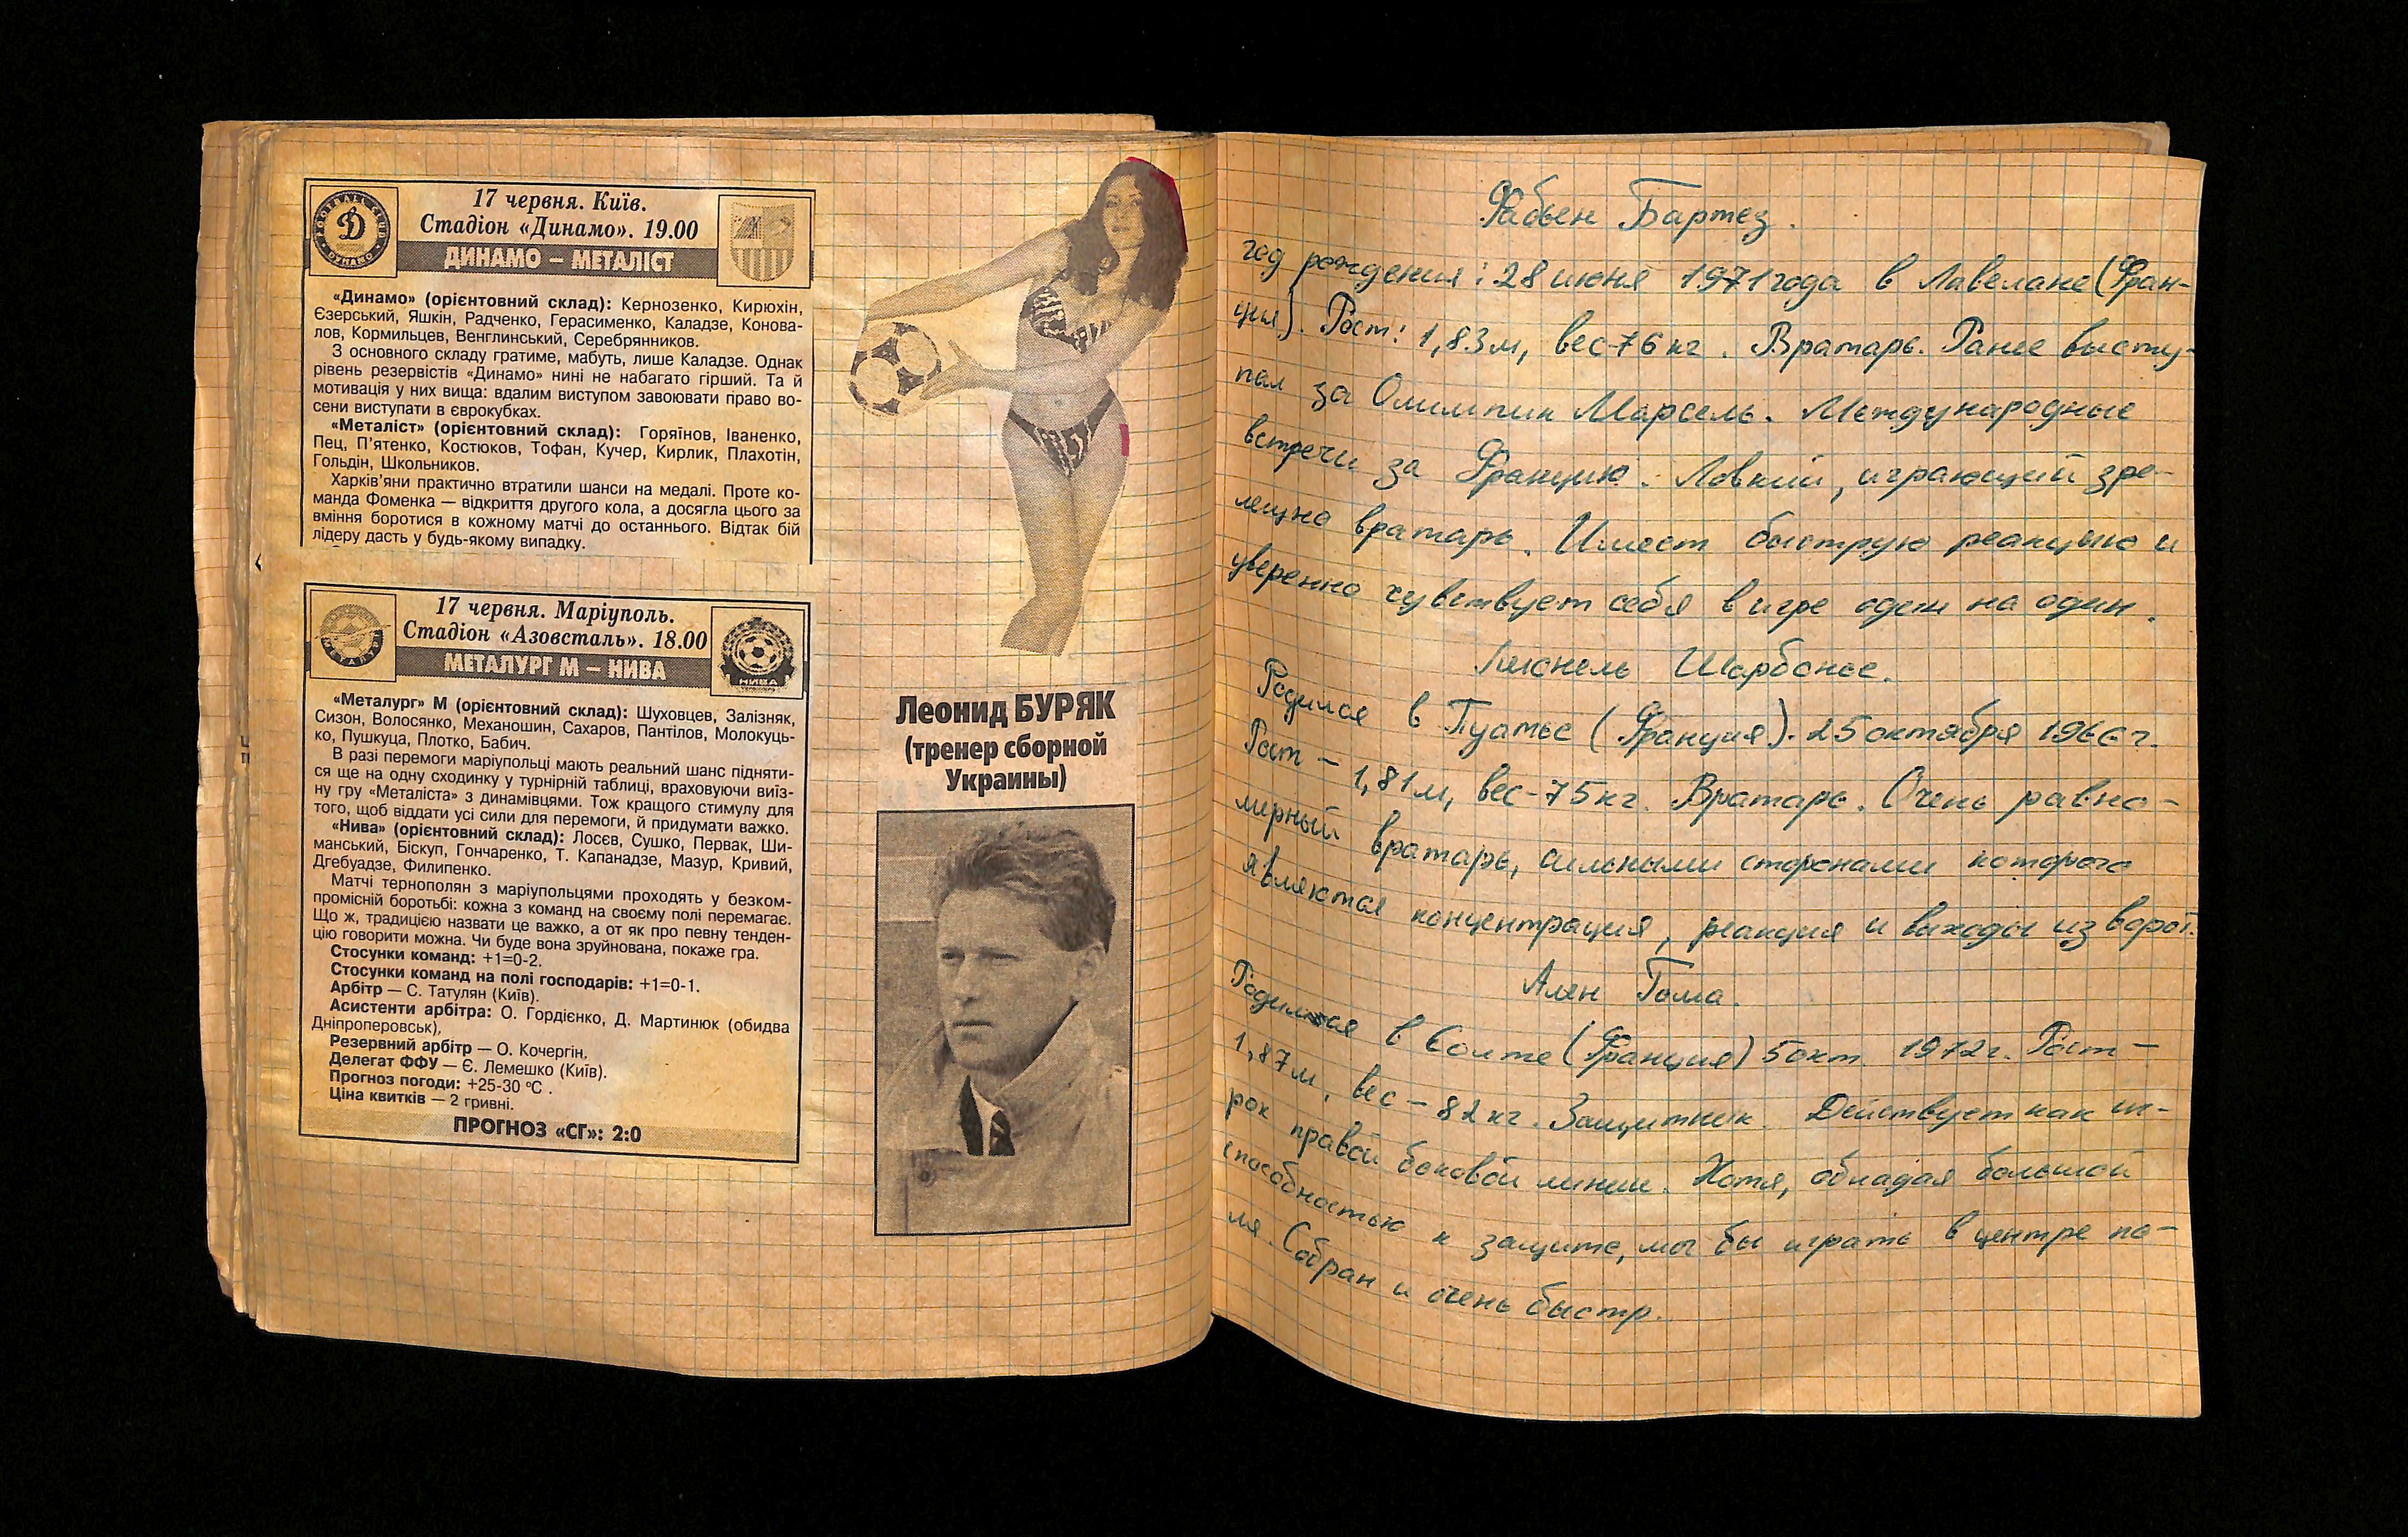 17 червня. Київ.
Стадіон «Динамо». 19.00
ДИНАМО – МЕТАЛІСТ
«Динамо» (орієнтовний склад): Кернозенко, Кирюхін,
Єзерський, Яшкін, Радченко, Герасименко, Каладзе, Конова-
лов, Кормильцев, Венглинський, Серебрянников.
З основного складу гратиме, мабуть, лише Каладзе. Однак
рівень резервістів «Динамо» нині не набагато гірший. Та й
мотивація у них вища: вдалим виступом завоювати право во-
сени виступати в єврокубках.
«Металіст» (орієнтовний склад): Горяїнов, Іваненко,
Пец, П'ятенко, Костюков, Тофан, Кучер, Кирлик, Плахотін,
Гольдін, Школьников.
Харків'яни практично втратили шанси на медалі. Проте ко-
манда Фоменка — відкриття другого кола, а досягла цього за
вміння боротися в кожному матчі до останнього. Відтак бій
лідеру дасть у будь-якому випадку.
17 червня. Маріуполь.
Стадіон «Азовсталь». 18.00
МЕТАЛУРГ М – НИВА
НИВА
«Металург» М (орієнтовний склад): Шуховцев, Залізняк,
Сизон, Волосянко, Механошин, Сахаров, Пантілов, Молокуць-
ко, Пушкуца, Плотко, Бабич.
В разі перемоги маріупольці мають реальний шанс підняти-
ся ще на одну сходинку у турнірній таблиці, враховуючи виїз-
ну гру «Металіста» з динамівцями. Тож кращого стимулу для
того, щоб віддати усі сили для перемоги, й придумати важко.
«Нива» (орієнтовний склад): Лосєв, Сушко, Первак, Ши-
манський, Біскуп, Гончаренко, Т. Капанадзе, Мазур, Кривий,
Дгебуадзе, Филипенко.
Матчі тернополян з маріупольцями проходять у безком-
промісній боротьбі: кожна з команд на своєму полі перемагає.
Що ж, традицією назвати це важко, а от як про певну тенден-
цію говорити можна. Чи буде вона зруйнована, покаже гра.
Стосунки команд: +1=0-2.
Стосунки команд на полі господарів: +1=0-1.
Арбітр — С. Татулян (Київ).
Асистенти арбітра: О. Гордієнко, Д. Мартинюк (обидва
Дніпроперовськ),
Резервний арбітр — О. Кочергін.
Делегат ФФУ — Є. Лемешко (Київ).
Прогноз погоди: +25-30 ºС .
Ціна квитків — 2 гривні.
ПРОГНОЗ «СГ»: 2:0
Леонид БУРЯК
(тренер сборной
Украины)
Фабьен Бартез.
год рождения: 28 июня 1971 года в Лавелане (Фран-
ция). Рост: 1,83м, вес-76 кг. Вратарь. Ранее высту-
пал за Олимпик Марсель. Международные
встречи за Францию. Ловкий, играющий зре-
лищно вратарь. Имеет быструю реакцию и
уверенно чувствует себя в игре один на один.
Лионель Шарбонье.
Родился в Пуатье (Франция). 25 октября 1966г.
Рост – 1,81м, вес-75кг. Вратарь. Очень равно-
мирный вратарь, сильными сторонами которого
являются концентрация, реакция и выходы из ворот.
Ален Гома.
Родился в Солте (Франция) 5 окт. 1972г. Рост –
1,87м, вес – 82 кг. Защитник. Действует как иг-
рок правой боковой линии. Хотя, обладая большой
способностью к защите, мог бы играть в центре по-
ля. Собран и очень быстр.